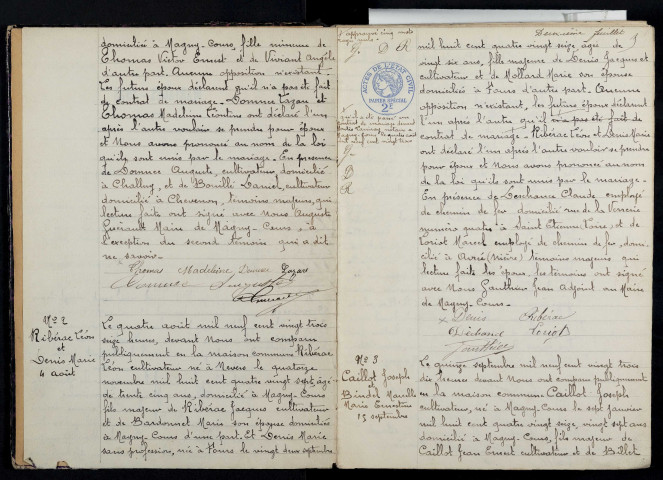 domiciliée à Magny-Cours, fille mineure de
Thomas Victor Ernest et de Viviant Angèle
d'autre part. Aucune opposition n'existant.
Les futurs époux déclarent qu'il n'a pas été fait
de contrat de mariage. Donnee Lazare et
Thomas Madeleine Léontine ont déclaré l'un
après l'autre vouloir se prendre pour époux
et Nous avons prononcé au nom de la loi
qu'ils sont unis par le mariage. En présence
de Donnee Auguste, cultivateur, domicilié
à Challuy, et de Bouillé Daniel, cultivateur
domicilié à Chevenon, témoins majeurs, qui
lecture faite ont signé avec Nous Auguste
Guérault Maire de Magny-Cours, à
l'exception du second témoin qui a dit
ne savoir.
Thomas Madeleine Donnee Lazare
N° 2
Ribérac Léon
et
Denis Marie
4 août
Le quatre août mil neuf cent vingt trois
seize heures, devant Nous ont comparu
publiquement en la maison commune Ribérac
Léon cultivateur né à Nevers le quatorze
novembre mil huit cent quatre vingt sept âgé
de trente cinq ans, domicilié à Magny-Cours
fils majeur de Ribérac Jacques cultivateur
et de Bardonnet Marie son épouse domiciliés
à Magny-Cours d'une part. Et Denis Marie
sans profession, née à Fours le vingt deux septembre
Deuxième feuillet
ACTES DE L'ÉTAT CIVIL
PAPIER SPÉCIAL
2F
mil huit cent quatre vingt seize âgée de
vingt six ans, fille majeure de Denis Jacques et
cultivateur et de Mollard Marie son épouse
domiciliés à Fours d'autre part. Aucune
opposition n'existant, les futurs époux déclarent
l'un après l'autre qu'il n'a pas été fait de
contrat de mariage. Ribérac Léon et Denis Marie
ont déclaré l'un après l'autre vouloir se prendre
pour époux et Nous avons prononcé au nom
de la loi qu'ils sont unis par le mariage.
En présence de Deschance Claude employé
de chemin de fer domicilié rue de la Vénerie
numéro quatre à Saint Etienne (Loire) et de
Loriot Marcel employé de chemin de fer, domi-
cilié à Avrée (Nièvre) témoins majeurs, qui
lecture faite les époux, les témoins ont signé
avec Nous Gauthier Jean Adjoint au Maire
de Magny-Cours.
Denis Ribérac
N° 3
Caillot Joseph
et
Bindel Marcelle
Marie Ernestine
15 septembre
Le quinze septembre mil neuf cent vingt trois
dix heures devant Nous ont comparu publiquement
en la maison commune Caillot Joseph
cultivateur, né à Magny-Cours le sept janvier
mil huit cent quatre vingt seize, vingt sept ans
domicilié à Magny-Cours, fils majeur de
Caillot Jean Ernest cultivateur et de Billet